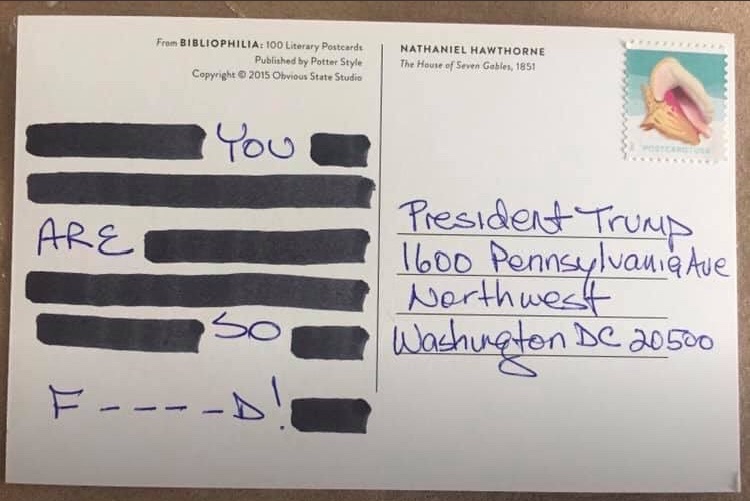 From BIBLIOPHILIA: 100 Literary Postcards
Published by Potter Style
Copyright © 2015 Obvious State Studio
YOU
ARE
SO
F-----D!
NATHANIEL HAWTHORNE
The House of Seven Gables, 1851
POSTCARD USA
President Trump
1600 Pennsylvania Ave
Northwest
Washington DC 20500